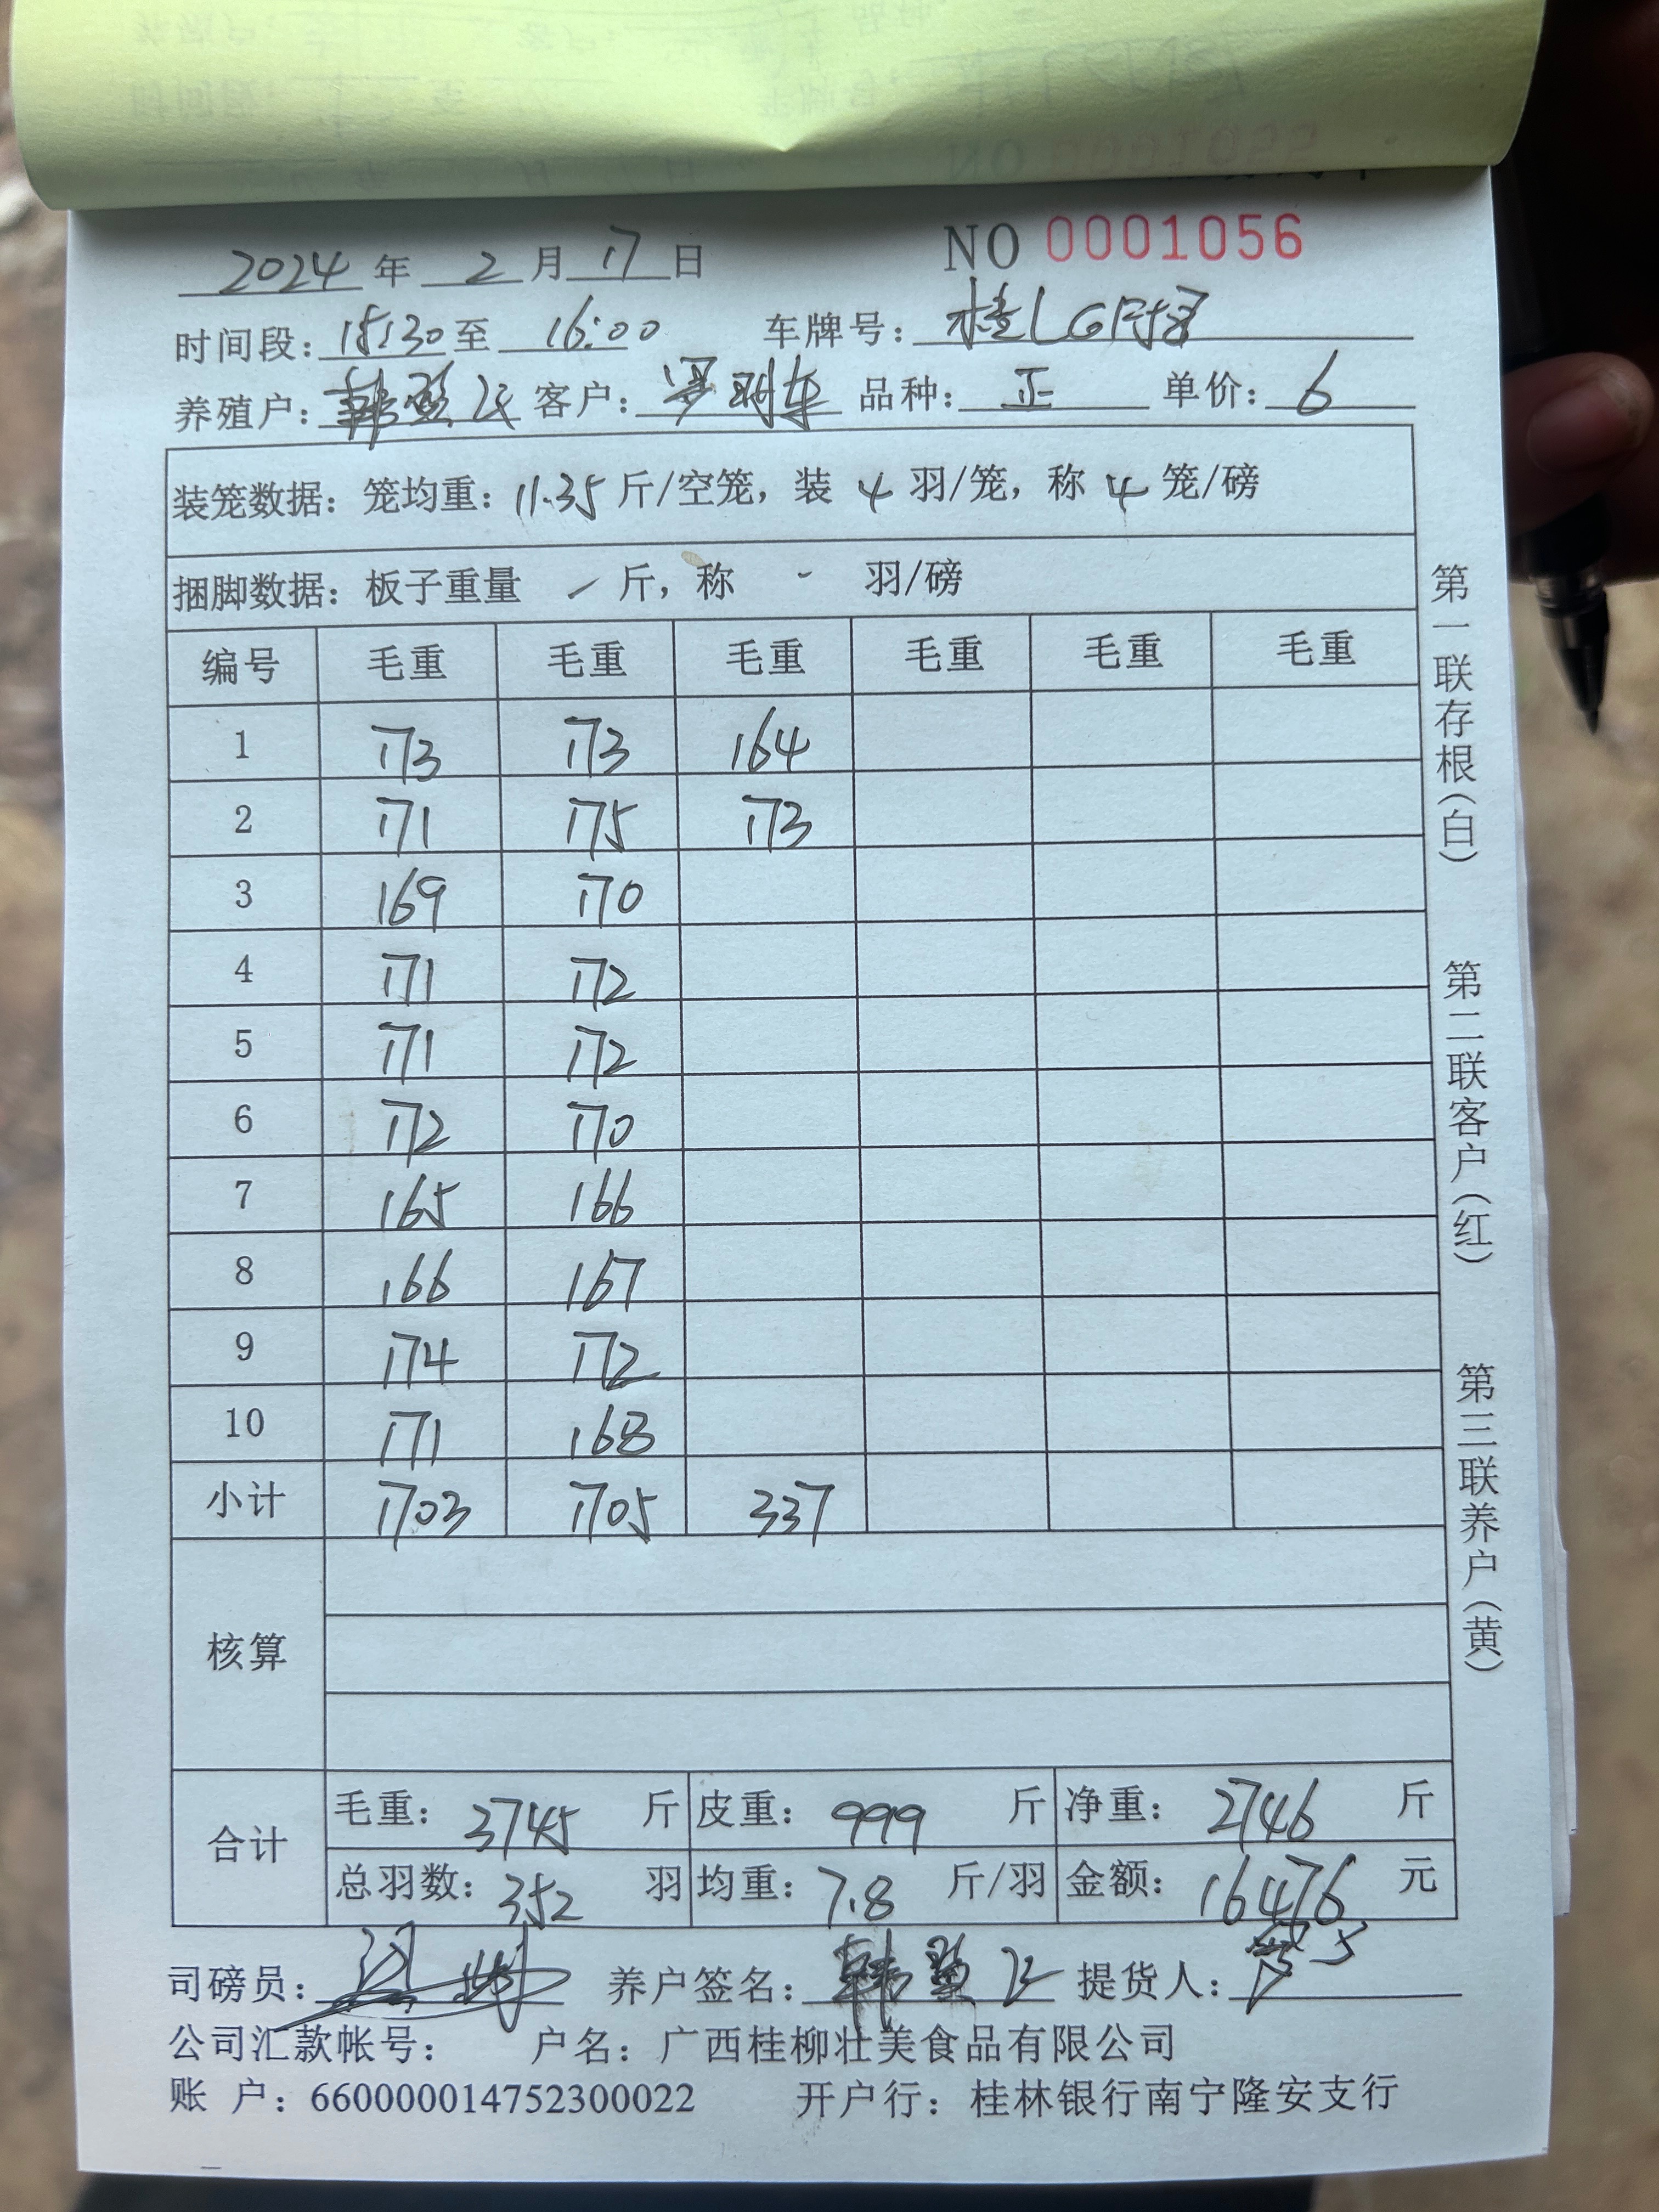 NO 0001056
2024年 2月17日
时间段：15:30至 16:00 车牌号：桂L
养殖户：韩 客户：罗 车 品种：正 单价：6
装笼数据：笼均重：11.35斤/空笼，装 4 羽/笼，称 4 笼/磅
捆脚数据：板子重量 - 斤，称 - 羽/磅
编号 毛重 毛重 毛重 毛重 毛重 毛重
1 173 173 164
2 171 175 173
3 169 170
4 171 172
5 171 172
6 172 170
7 165 166
8 166 167
9 174 172
10 171 168
小计 1703 1705 337
核算
合计
毛重：3745 斤 皮重：999 斤 净重：2746 斤
总羽数：352 羽 均重：7.8 斤/羽 金额：16476 元
司磅员： 养户签名：韩 提货人：
公司汇款帐号： 户名：广西桂柳壮美食品有限公司
账 户：660000014752300022 开户行：桂林银行南宁隆安支行
第一联存根（白） 第二联客户（红） 第三联养户（黄）